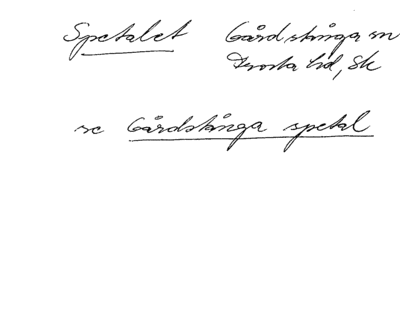 Spetalet Gårdstånga sn
Frosta hd, Sk
se Gårdstånga spetal